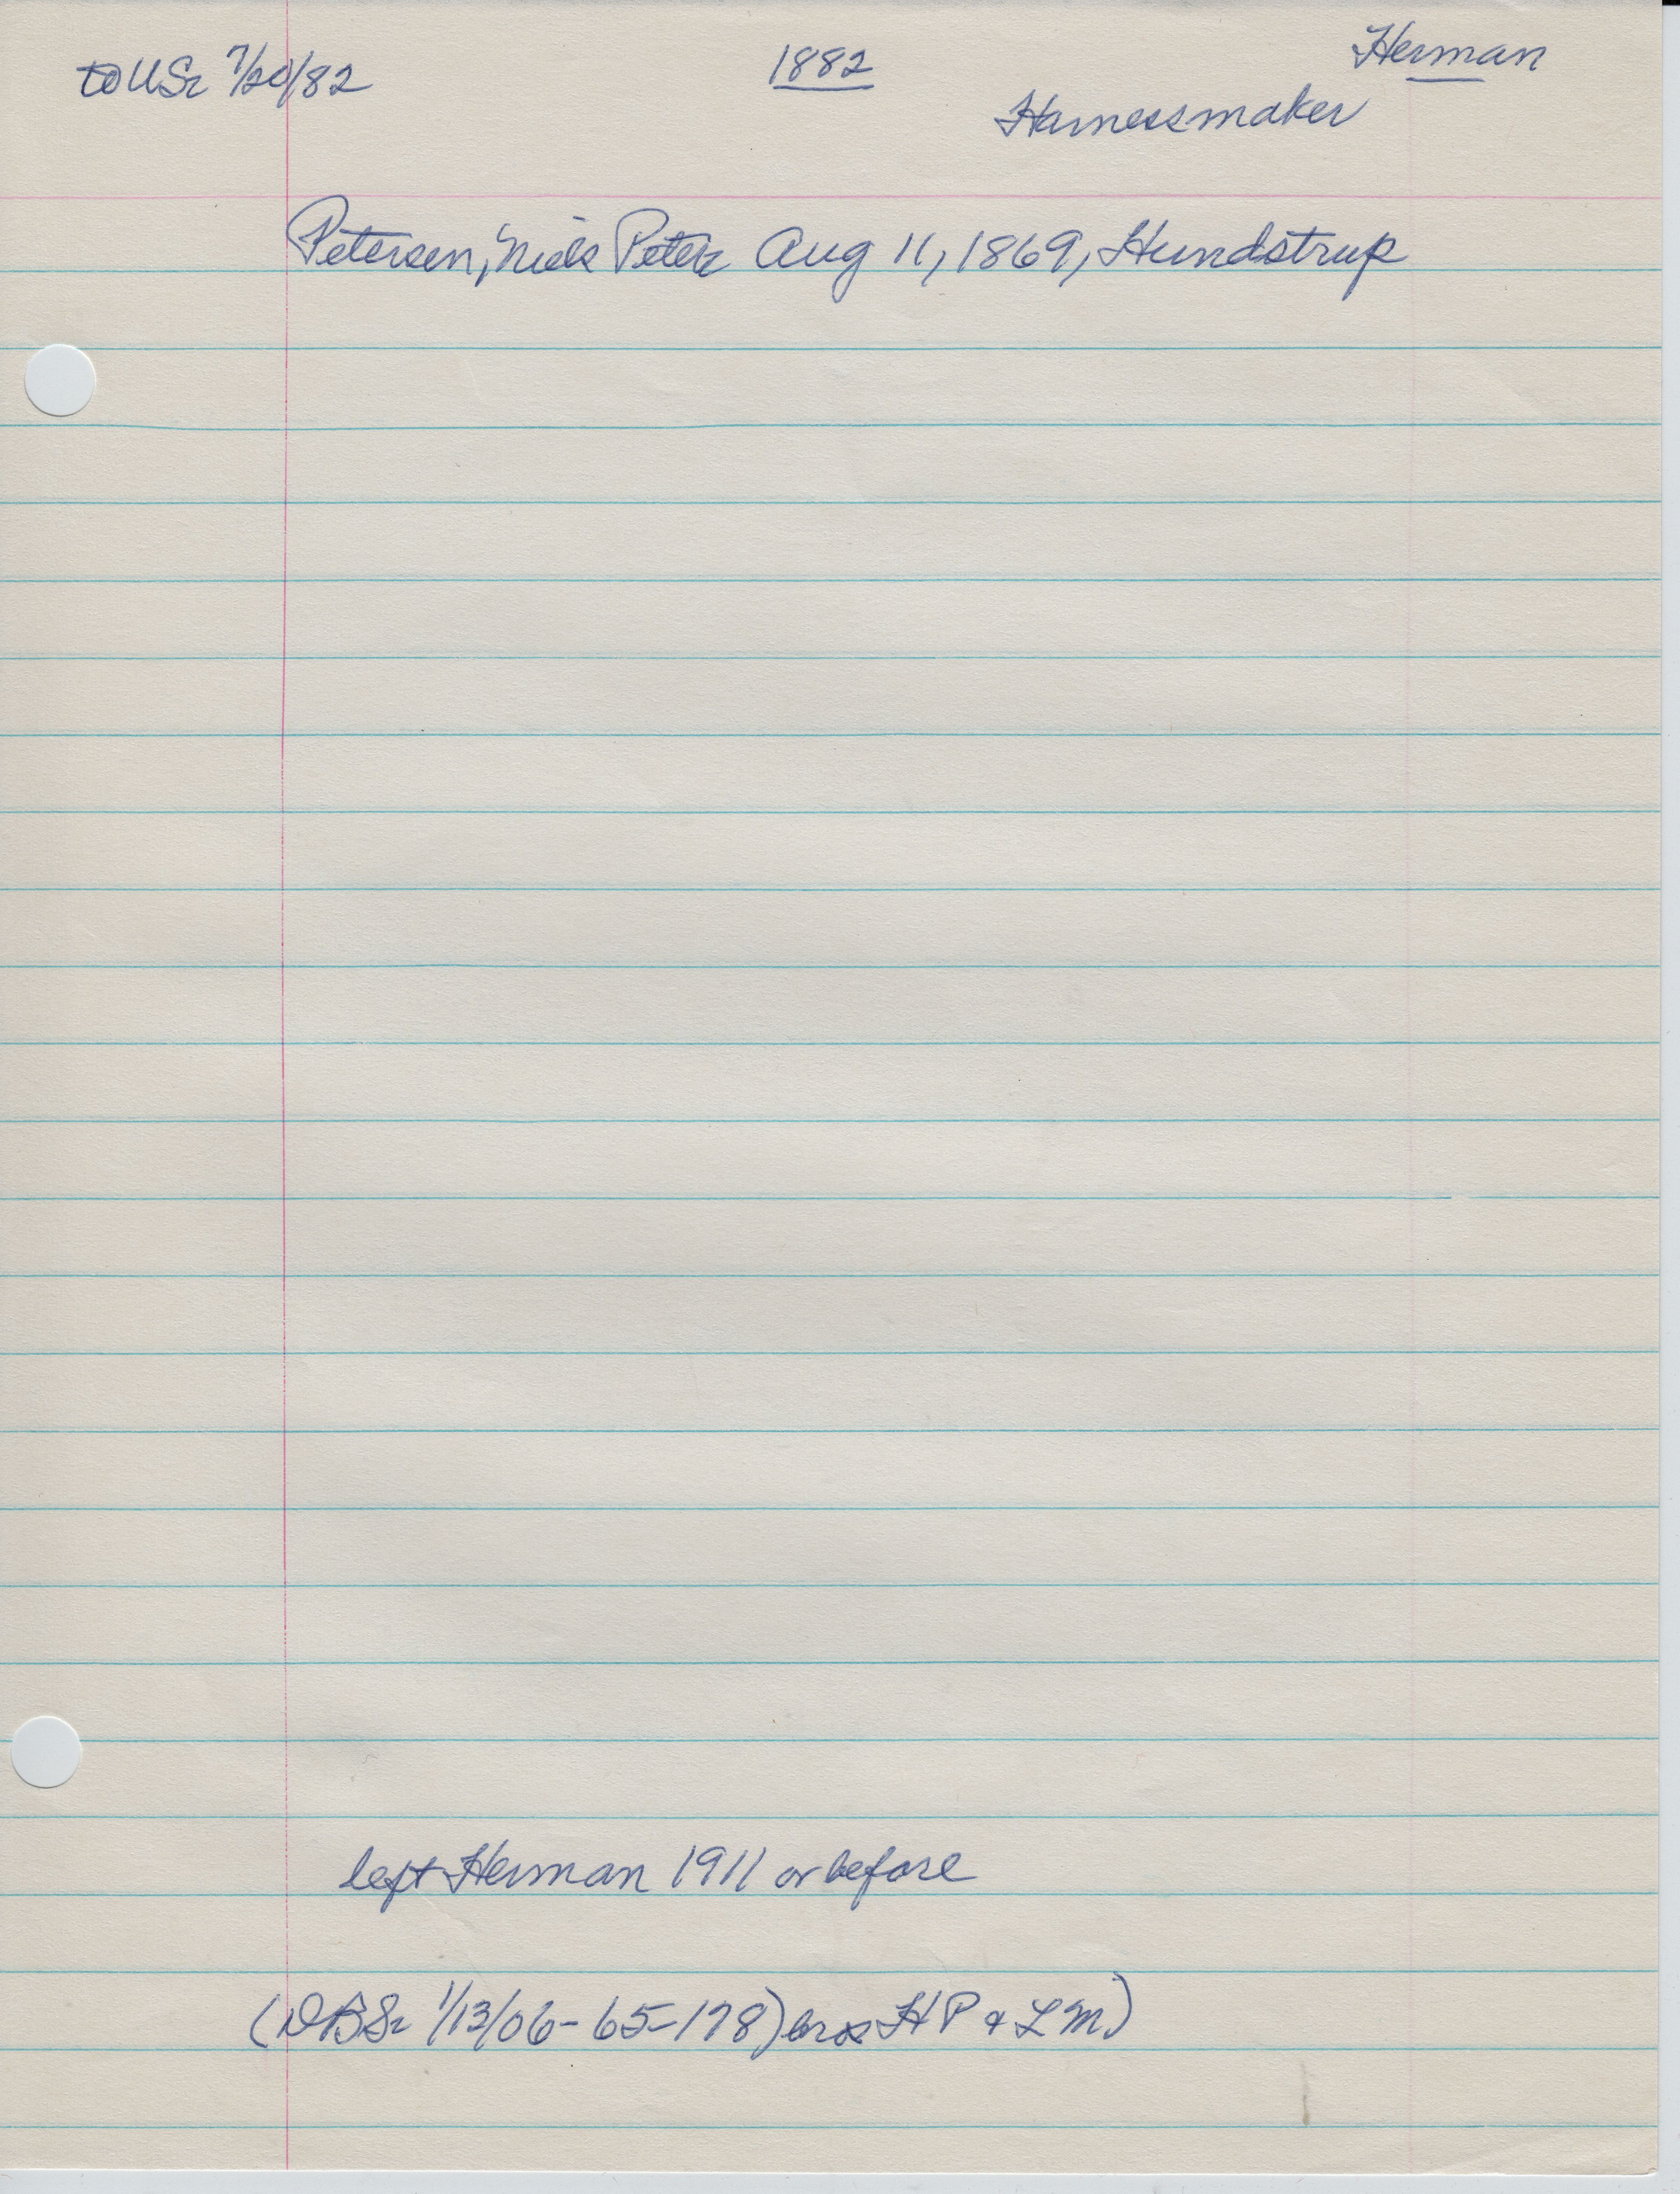 to US 7/20/82
1882
Herman
Harnessmaker
Petersen, Niels Peter Aug 11, 1869, Hundstrup
left Herman 1911 or before
(DBS 1/13/06-65-178) bros HP & LM)